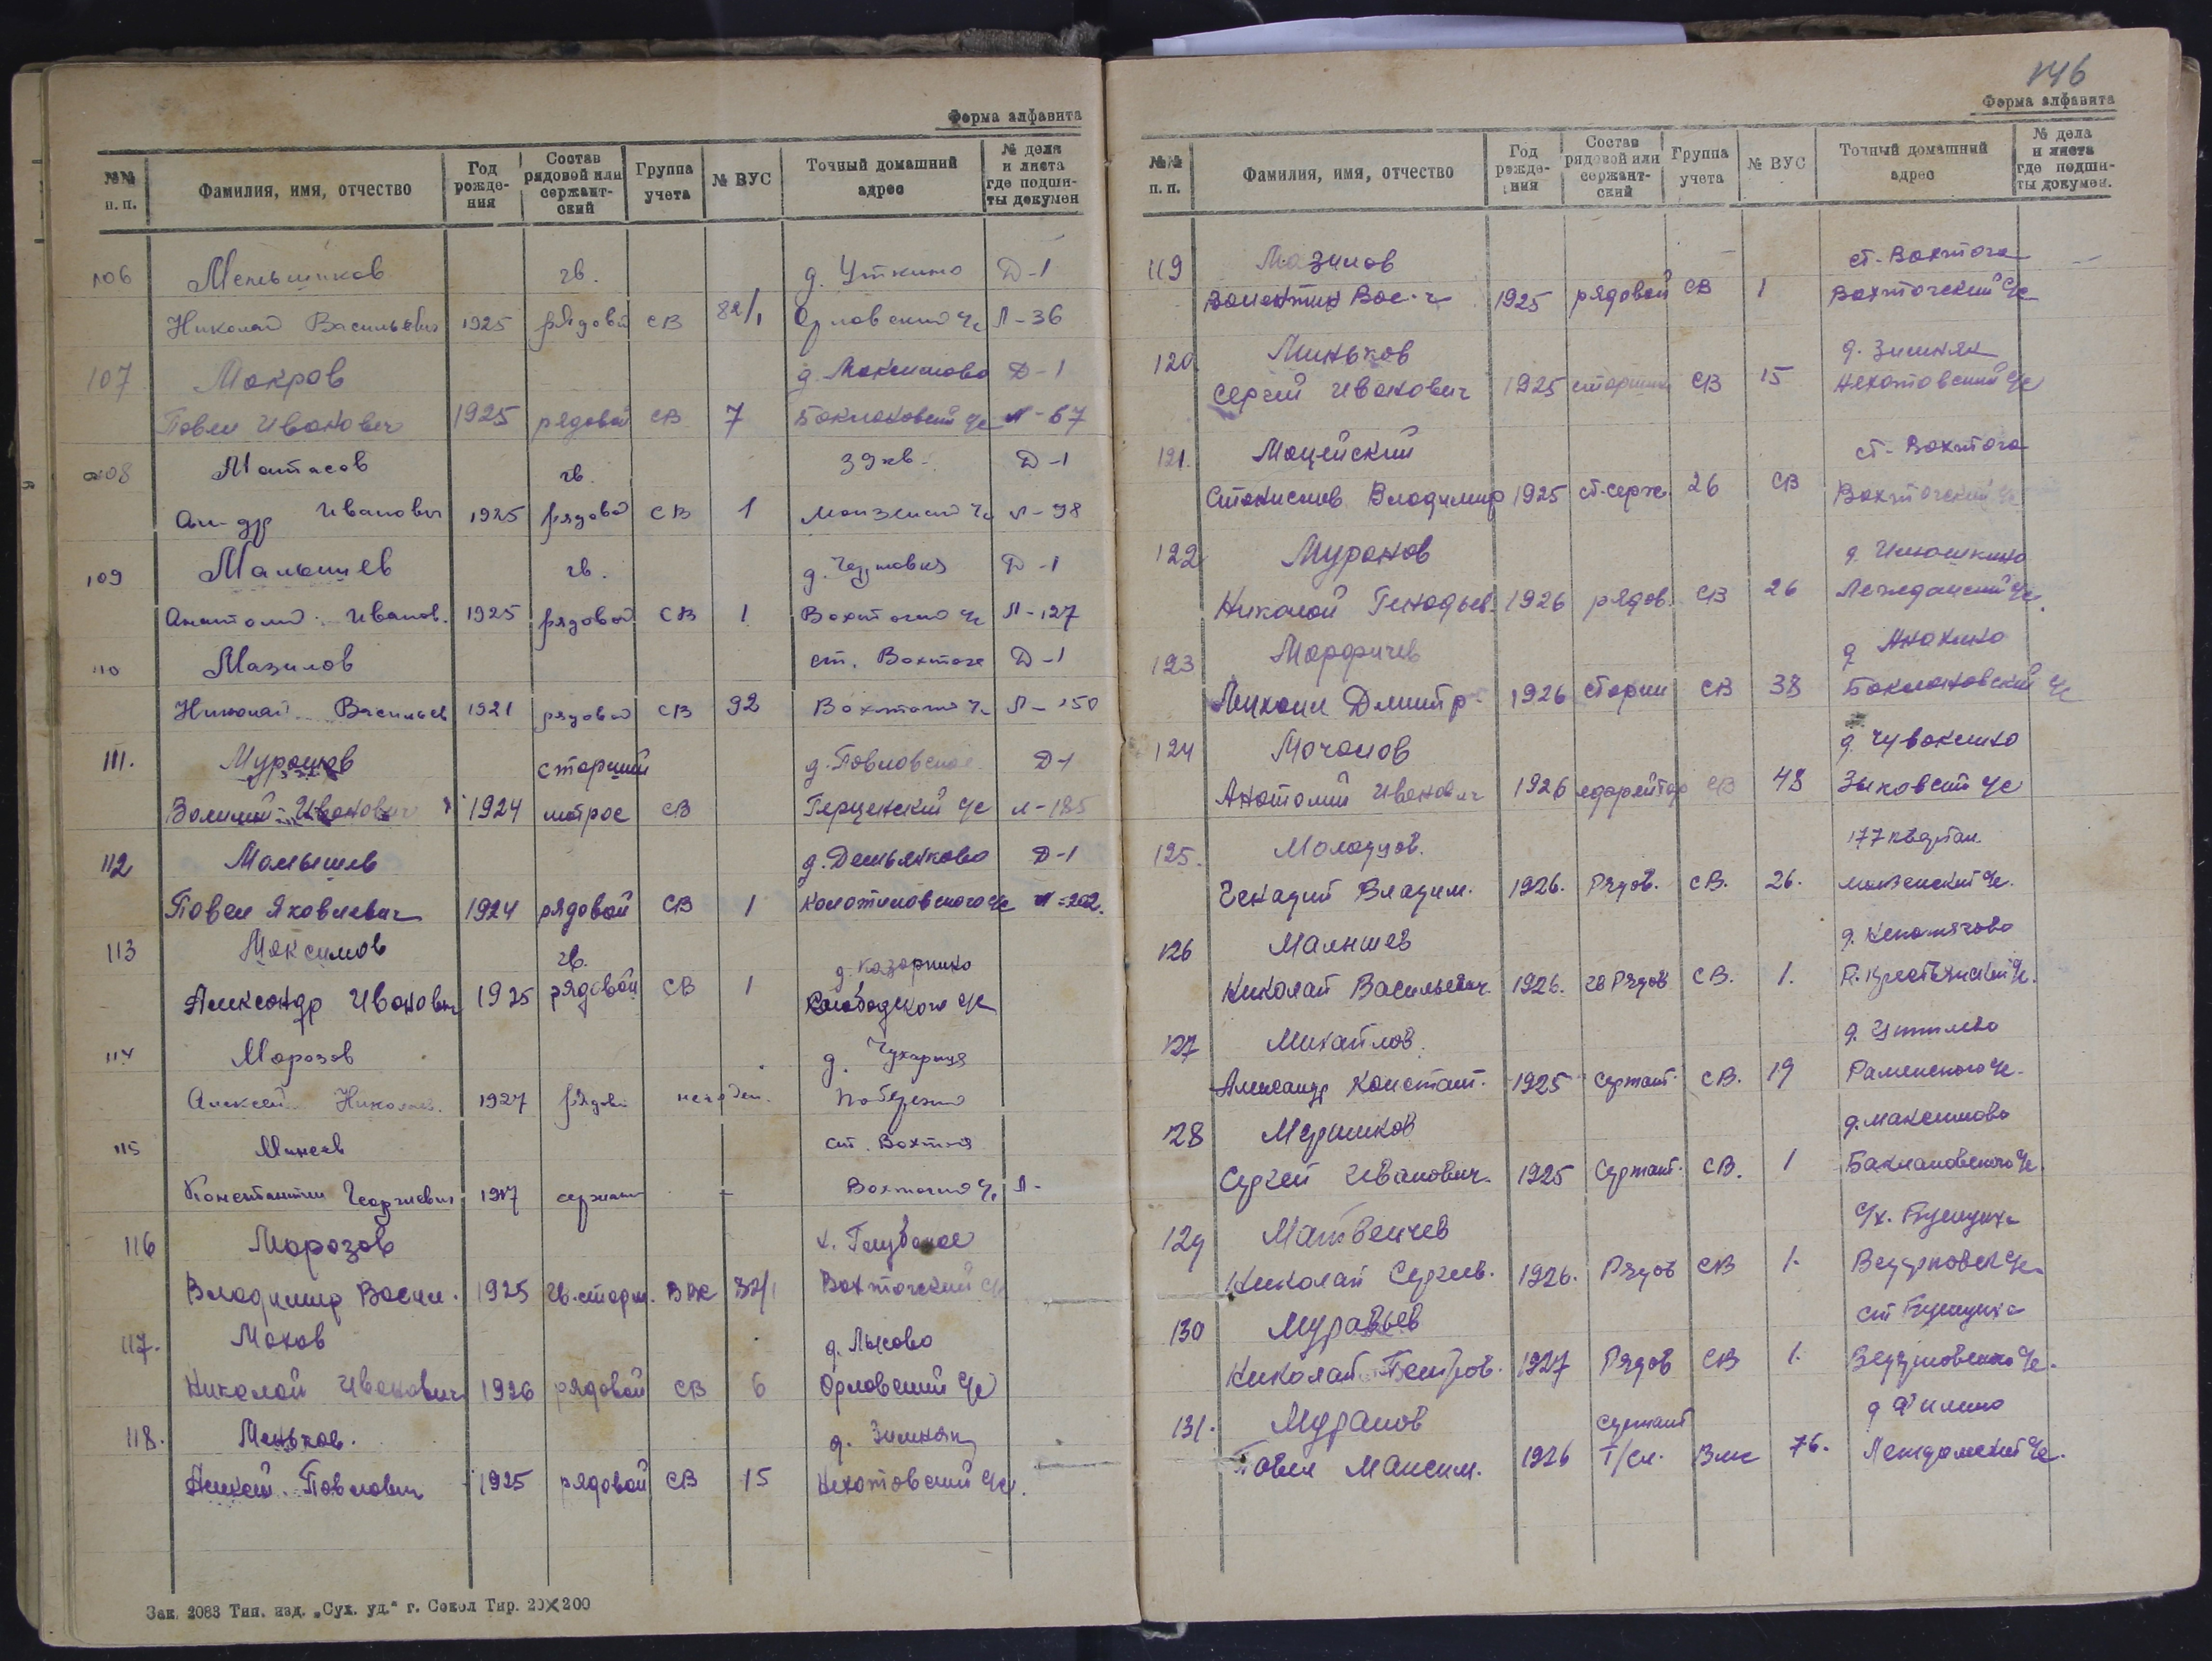 Форма алфавита
№№ п. п. Фамилия, имя, отчество Год рожде- ния Состав рядовой или сержант- ский Группа учета № ВУС Точный домашний адрес № дела и листа где подши- ты докумен
106 Меньшиков гв. д. Уткино Д-1
Николай Васильевич 1925 рядовой СВ 82/1 Орловский с/с Л-36
107 Мокров д. Максимово Д-1
Павел Иванович 1925 рядовой СВ 7 Баклановский с/с Л-67
108 Матасов гв. 39 кв. Д-1
Ал-др Иванович 1925 рядовой СВ 1 Монзенский с/с Л-98
109 Малышев гв. д. Д-1
Анатолий Иванов. 1925 рядовой СВ 1 Вохтогский с/с Л-127
110 Мазилов ст. Вохтога Д-1
Николай Васильев 1921 рядовой СВ 92 Вохтогский с/с Л-150
111. Мурашов старший д. Павловское Д-1
Валилий Иванович 1924 матрос СВ Герценский с/с Л-185
112 Малышев д. Демьянково Д-1
Павел Яковлевич 1924 рядовой СВ 1 с/с Л-202.
113 Максимов гв. д. Казаркино
Александр Иванович 1925 рядовой СВ 1 Слободского с/с
114 Морозов д. Чухарица
Алексей Николаев. 1927 рядов.
115 Минеев ст. Вохтога
Константин Георгиевич 1917 сержант - Вохтогский с/с Л-
116 Морозов
Владимир Васил. 1925 гв. старш. 32/1 Вохтогский с/с
117. Мохов д. Лысово
Николай Иванович 1926 рядовой СВ 6 Орловский с/с
118. Меньков. д. Зимняк
Павлович 1925 рядовой СВ 15 с/с.
Зак. 2083 Тип. изд. „Сух. уд.“ г. Сокол Тир. 20×200
146
Форма алфавита
№№ п. п. Фамилия, имя, отчество Год рожде- ния Состав рядовой или сержант- ский Группа учета № ВУС Точный домашний адрес № дела и листа где подши- ты докумен.
119 Мазилов ст. Вохтога
Валентин Вас-ч 1925 рядовой СВ 1 Вохтогский с/с
120 Миньков д. Зимняк
Сергей Иванович 1925 старшина СВ 15 с/с
121. Мацейский ст. Вохтога
Станислав Владимир 1925 ст. серж. 26 СВ Вохтогский с/с
122 Муранов д. Илюшкино
Николай Генадьев. 1926 рядов. СВ 26 Леждомский с/с.
123 Марфичев д. Анахино
Михаил Дмитр. 1926 старши СВ 38 Баклановский с/с
124 Мочалов д. Чувакшно
Анатолий Иванович 1926 ефрейтор СВ 48 Зыковский с/с
125. Молодцов. 177 квартал
Генадий Владим. 1926. Рядов. СВ. 26. Монзенский с/с.
126 Малышев д.
Николай Васильевич 1926. гв Рядов СВ. 1. с/с.
127 Михайлов. д.
Александр Констант. 1925 Сержант. СВ. 19 Раменского с/с.
128 Мершиков д. Максимово
Сергей Иванович. 1925 Сержант. СВ. 1 Баклановского с/с.
129 Матвеичев с/х. Бушуиха
Николай Сергеев. 1926. Рядов СВ 1. с/с.
130 Муравьев ст Бушуиха
Николай Петров. 1927 Рядов СВ 1. с/с.
131. Муранов сержант д Филино
Павел Максим. 1926 Т/сл. Вмс 76. Леждомский с/с.